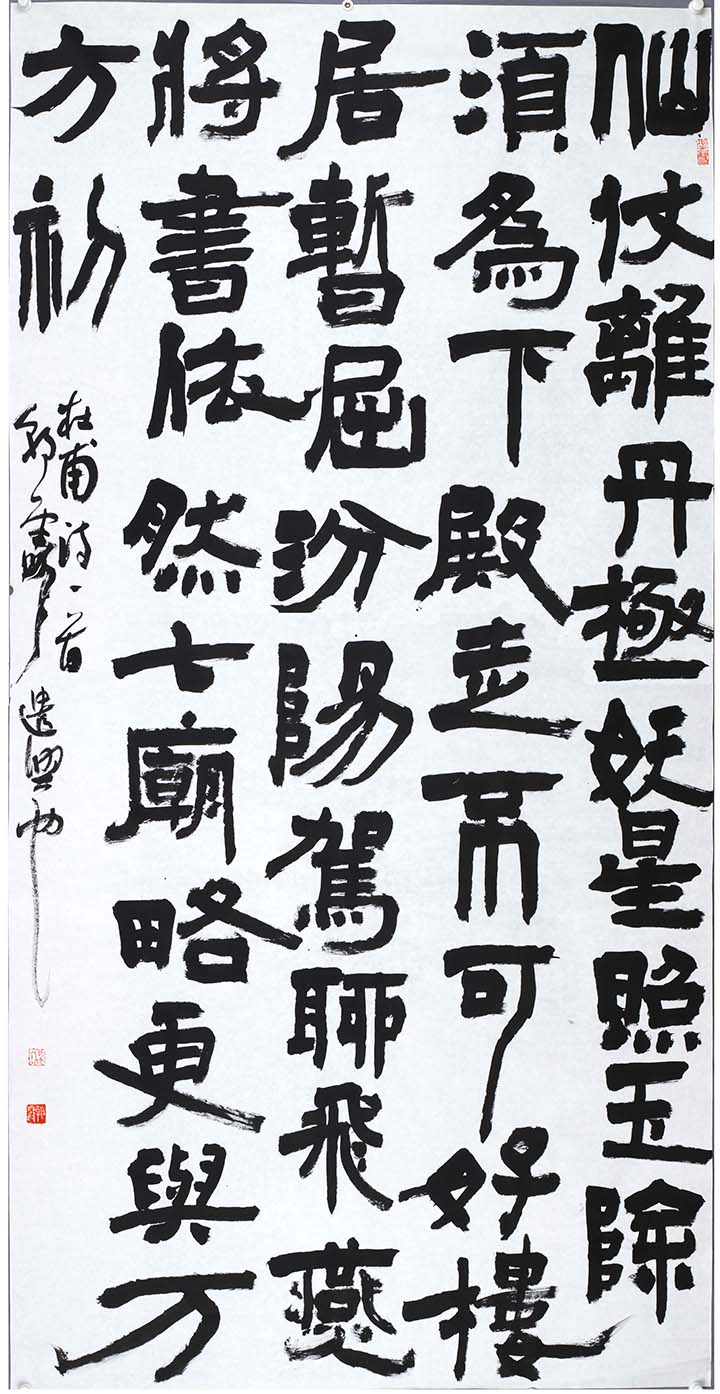 仙仗離丹極妖星照玉除
湏爲下殿走不可好樓
居暫屈汾陽駕聊飛燕
將書依然七廟略更與万
方初
杜甫诗一首
遣興